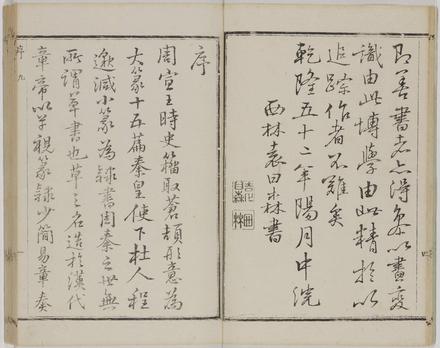 即善書者亦得參以畫變
識由此博學由此精於以
追踪作者不難矣
乾隆五十二年陽月中浣
西林袁日森書
序
周宣王時史籀取蒼頡形意為
大篆十五篇秦皇使下杜人程
邈減小篆為隸書周秦之世無
所謂草書也草之名造於漢代
章帝以早視篆隸少簡易章奏
序 九